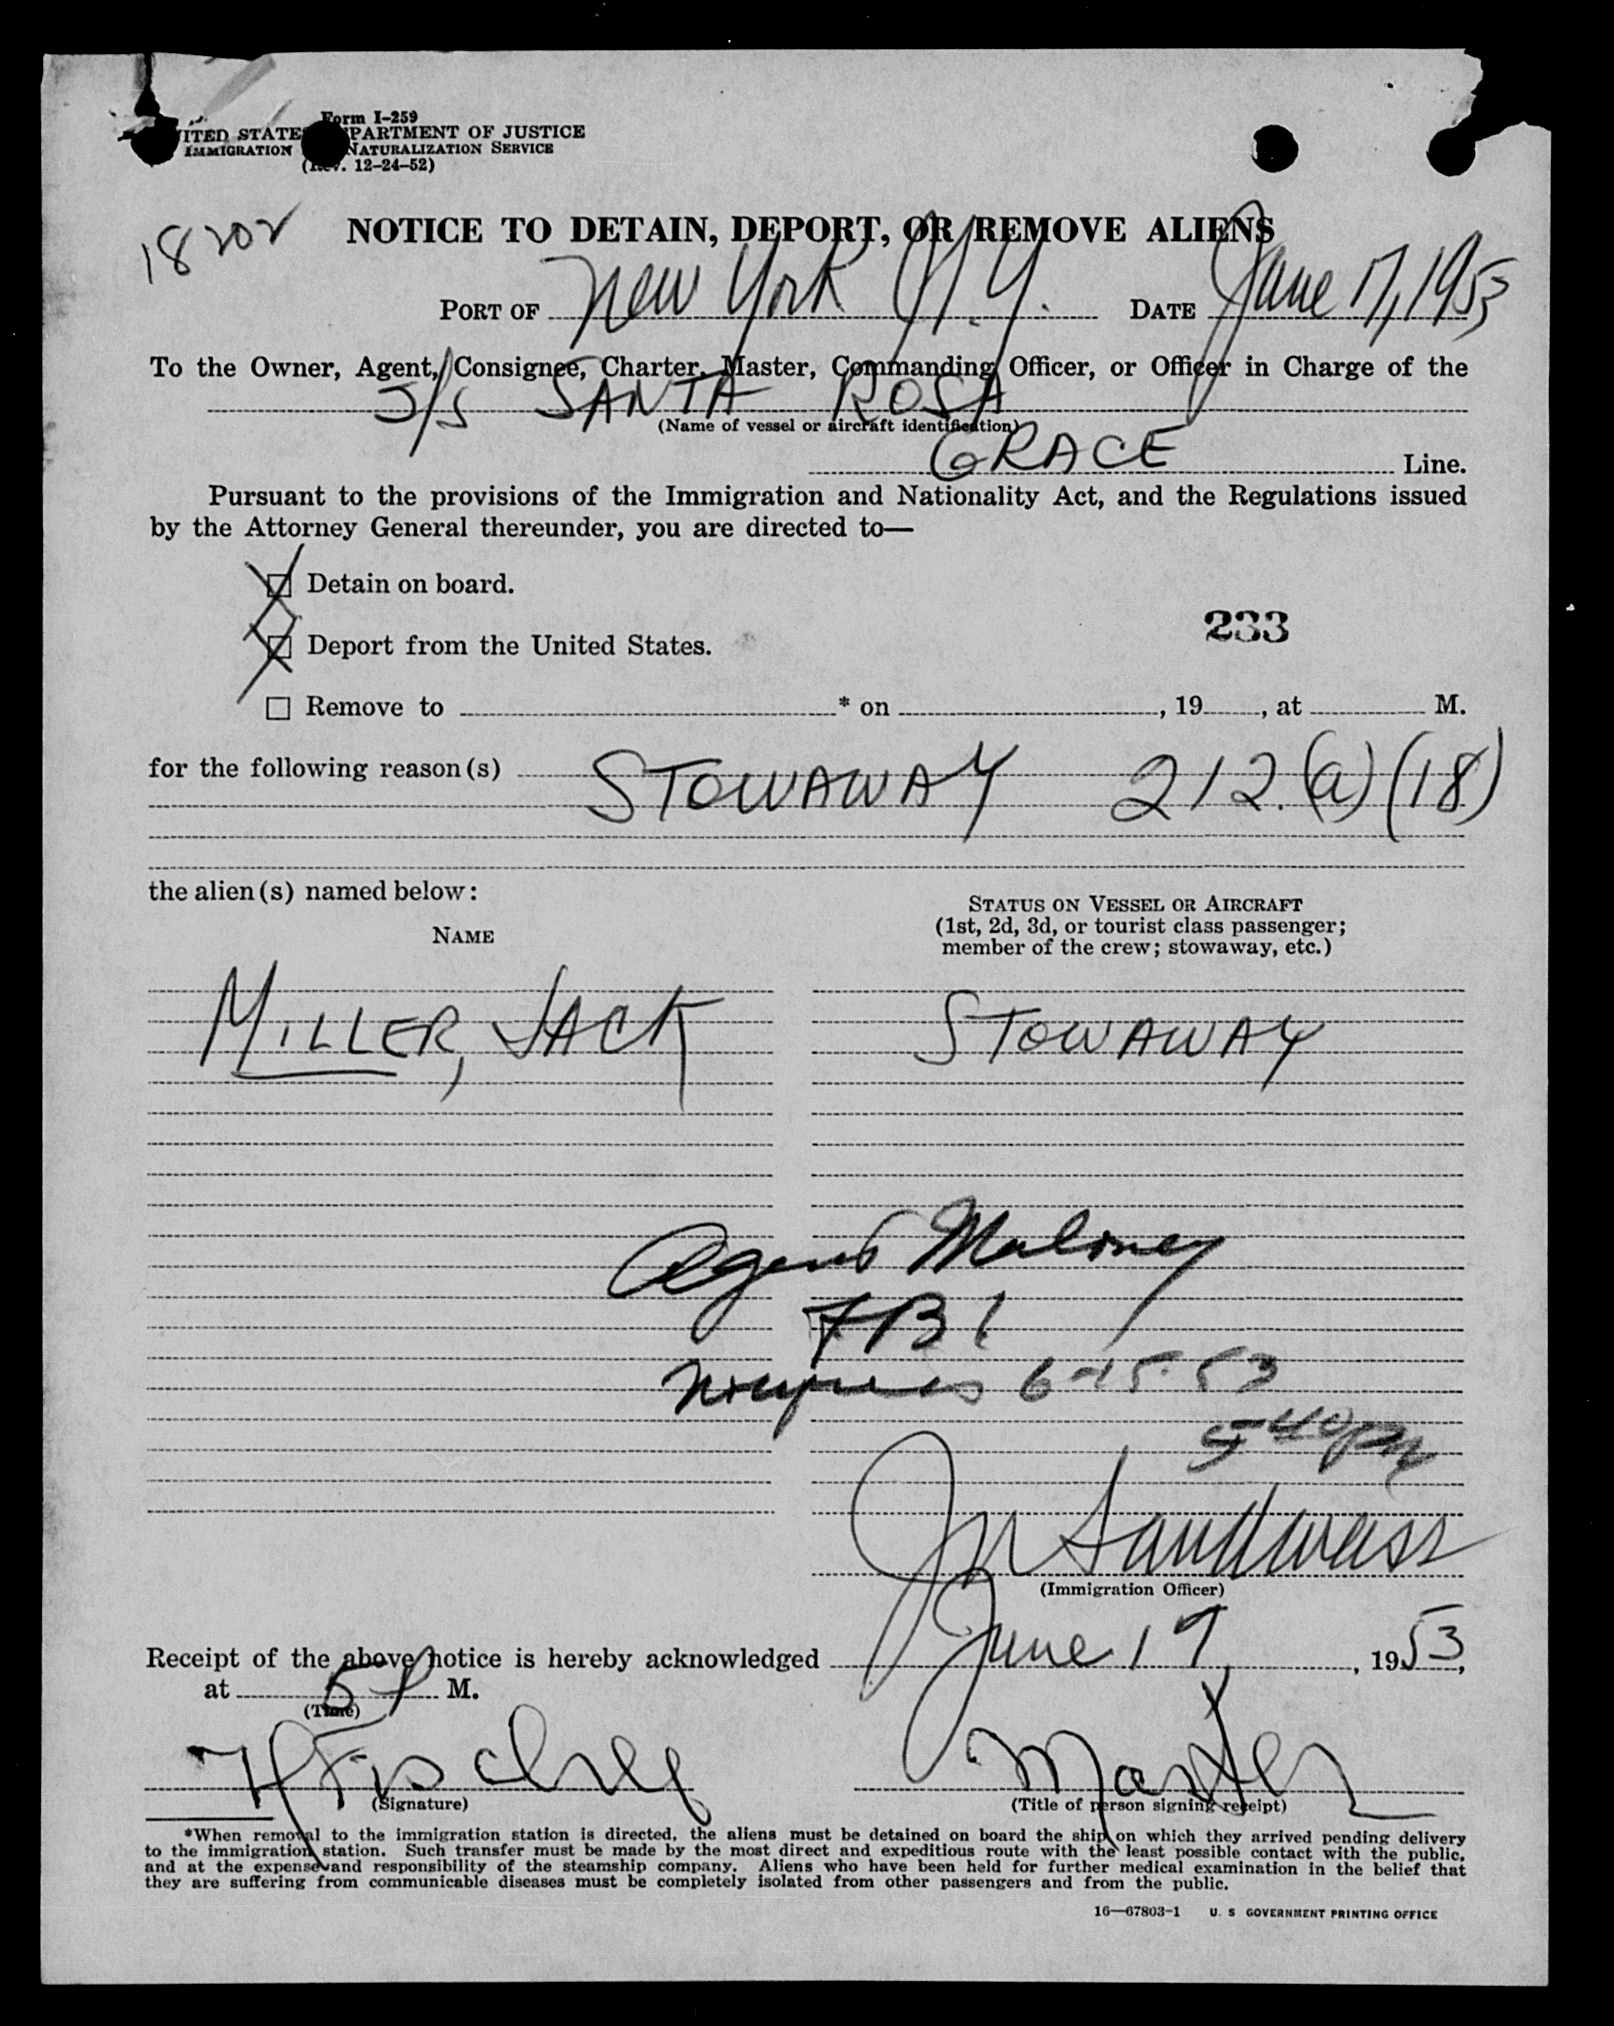 Form I-259
UNITED STATES DEPARTMENT OF JUSTICE
IMMIGRATION NATURALIZATION SERVICE
(Rev. 12-24-52)
18202
NOTICE TO DETAIN, DEPORT, OR REMOVE ALIENS
PORT OF New York N.Y. DATE June 17, 1953
To the Owner, Agent, Consignee, Charter, Master, Commanding Officer, or Officer in Charge of the
S/S SANTA ROSA
(Name of vessel or aircraft identification)
GRACE Line.
Pursuant to the provisions of the Immigration and Nationality Act, and the Regulations issued
by the Attorney General thereunder, you are directed to—
Detain on board.
233
Deport from the United States.
Remove to * on , 19 , at M.
for the following reason(s) STOWAWAY 212.(a)(18)
the alien(s) named below:
NAME
STATUS ON VESSEL OR AIRCRAFT
(1st, 2d, 3d, or tourist class passenger;
member of the crew; stowaway, etc.)
MILLER, JACK STOWAWAY
Agent Maloney
FBI
6-15-53
540PM
Sandweiss
(Immigration Officer)
Receipt of the above notice is hereby acknowledged June 17, 1953,
at 5 P M.
(Time)
H Fischer Master
(Signature) (Title of person signing receipt)
*When removal to the immigration station is directed, the aliens must be detained on board the ship on which they arrived pending delivery
to the immigration station. Such transfer must be made by the most direct and expeditious route with the least possible contact with the public,
and at the expense and responsibility of the steamship company. Aliens who have been held for further medical examination in the belief that
they are suffering from communicable diseases must be completely isolated from other passengers and from the public.
16—67803-1 U. S GOVERNMENT PRINTING OFFICE